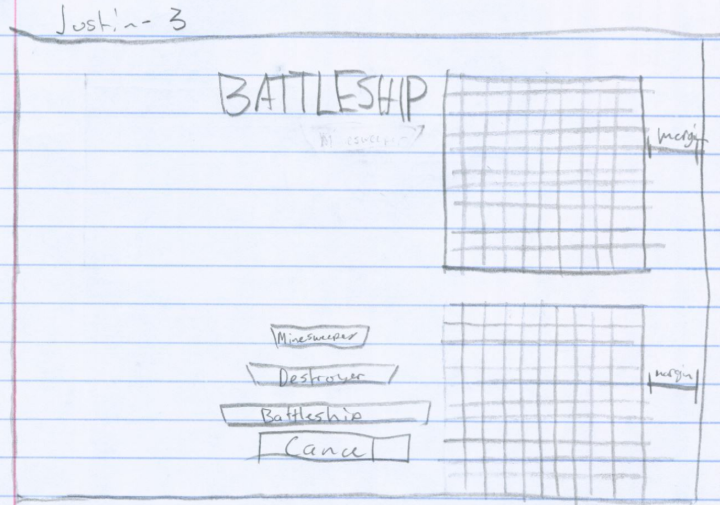 Justin - 3
BATTLESHIP
margin
Minesweeper
Destroyer
margin
Battleship
Cancel